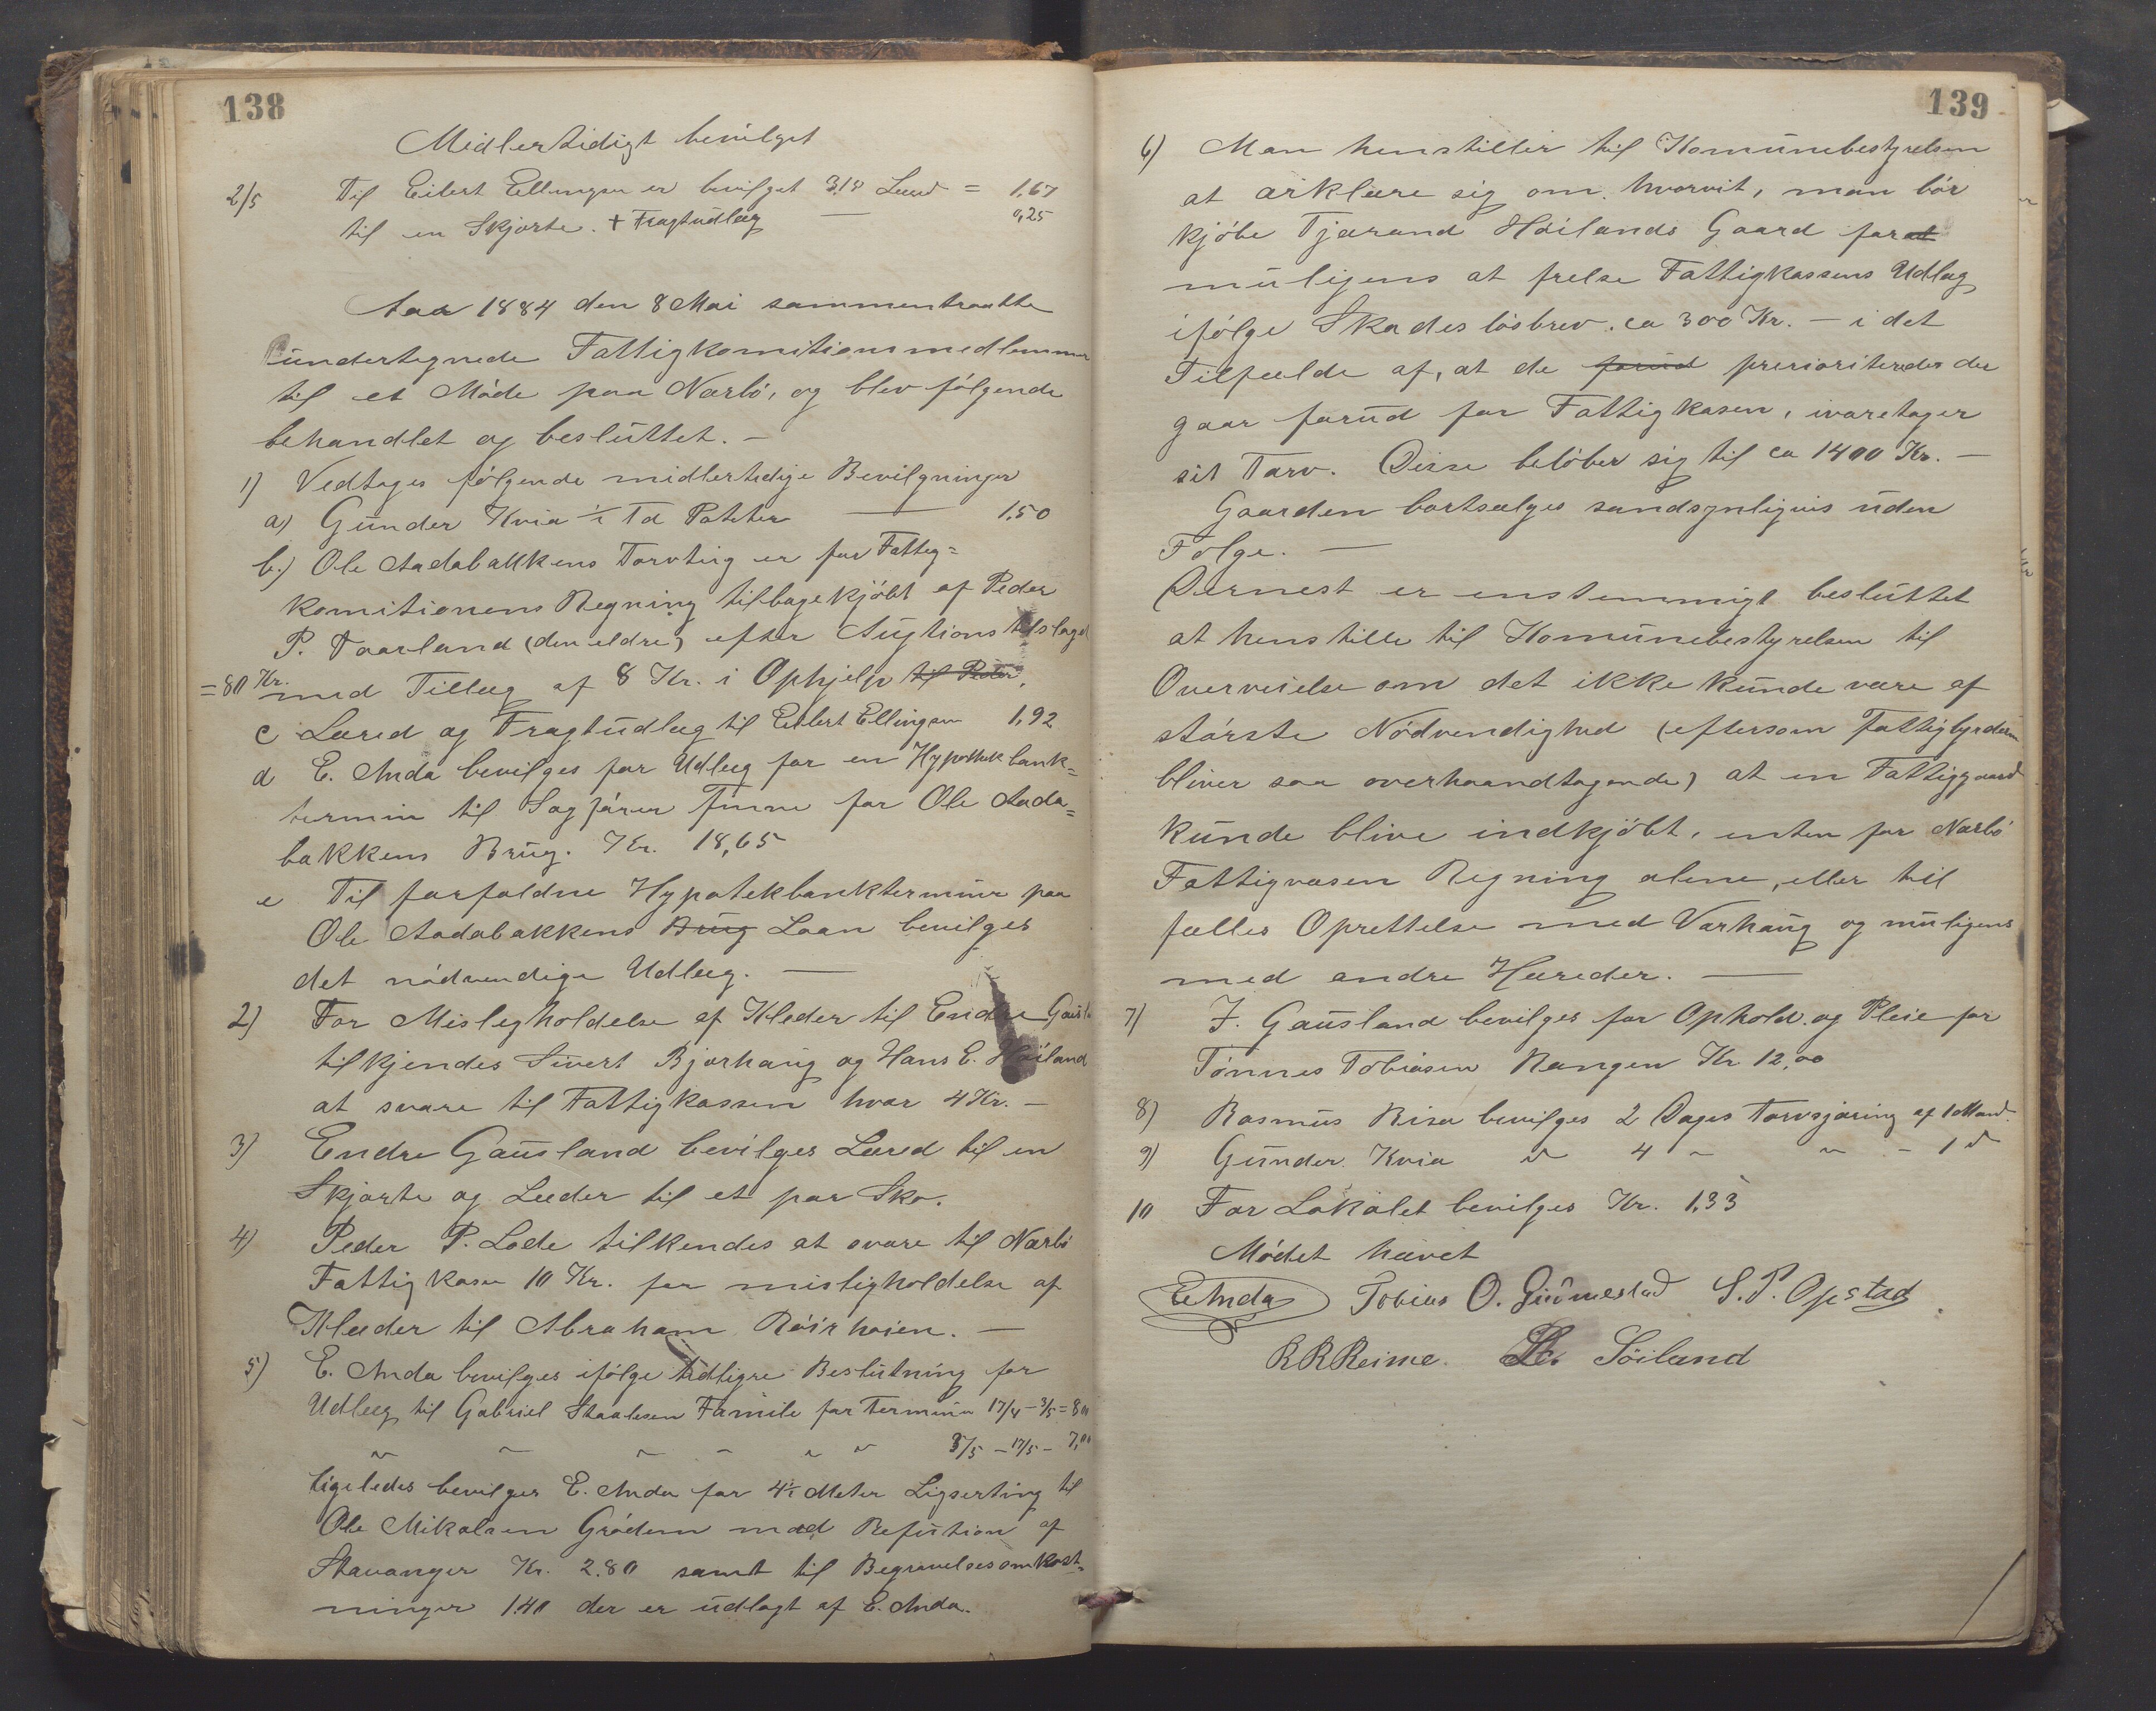 138
Midlertidigt bevilget
2/5 Til Eilert Ellingsen er bevilget Lærred = 1,67
til en Skjorte. + Fragtudlæg — 0,25
Aar 1884 den 8 Mai sammentraatte
undertegnede Fattigkomitionsmedlemmer
til et Móde paa Nærbó, og blev fólgende
behandlet og besluttet. —
1) Vedtages fólgende midlertidige Bevilgninger
a) Gunder Kvia ½ Td Poteter — 1,50
b.) Ole Aadabakkens Torvting er for Fattig=
komitionens Regning tilbagekjóbt af Peder
P. Taarland (den eldre) efter Augtionstilslaget
=80 Kr. med Tillæg af 8 Kr. i Ophjelp til Peder,
c Læred og Fragtudlæg til Eilert Ellingsen 1,92
d E. Anda bevilges for Udlæg for en Hypothekbank=
termin til Sagfører Finne for Ole Aada=
bakkens Brug. Kr. 18,65
e Til forfaldne Hypotekbankterminer paa
Ole Aadabakkens Brug Laan bevilges
det nódvendige Udlæg. —
2) For Misligholdelse af Klæder til Endre Gausl
tilkjendes Sivert Bjorhaug og Hans E. Höiland
at svare til Fattigkassen hver 4 Kr. —
3) Endre Gausland bevilges Læred til en
Skjorte og Læder til et par Sko.
4) Peder P. Lode tilkendes at svare til Nærbó
Fattigkase 10 Kr. for misligholdelse af
Klæder til Abraham Róirhoien. —
5) E. Anda bevilges ifólge tidligre Beslutning for
Udlæg til Gabriel Staalesen Familie for Termin 17/4 – 3/5 = 8,00
" " " " " " 3/5 – 17/5 – 7,00
ligeledes bevilges E. Anda for 4½ Meter Ligserting til
Ole Mikalsen Gródem med Refution af
Stavanger Kr. 2.80 samt til Begravelsesomkost=
ninger 1.40 der er udlagt af E. Anda.
139
6) Man henstiller til Komunebestyrelsen
at ærklære sig om hvorvit, man bór
kjóbe Tjærand Hóilands Gaard for at
muligens at frelse Fattigkassens Udlæg
ifólge Skadeslósbrev. ca 300 Kr. — i det
Tilfælde af, at de forud prerioriteredes der
gaar forud for Fattigkasen, ivaretager
sit Tarv. Disse belóber sig til ca 1400 Kr. —
Gaarden bortsælges sandsynligvis uden
Folge. —
Dernest er enstemmigt besluttet
at henstille til Komunebestyrelsen til
Overveielse om det ikke kunde være af
stórste Nódvendighed (eftersom Fattigbyrden
bliver saa overhaandtagende) at en Fattiggaard
kunde blive indkjóbt, enten for Nærbó
Fattigvæsen Regning alene, eller til
fælles Oprettelse med Varhaug og muligens
med andre Hæreder. —
7) J. Gausland bevilges for Ophold og Pleie for
Tónnes Tobiasen Nangen Kr 12,00
8) Rasmus Risa bevilges 2 Dages Torvsjæring af 1 Mand
9) Gunder Kvia d 4 " " – 1 d
10 For Lokalet bevilges Kr. 1,33
Módet hævet
E Anda Tobias O. Gudmestad S. P. Opstad
R R Reime. Söiland